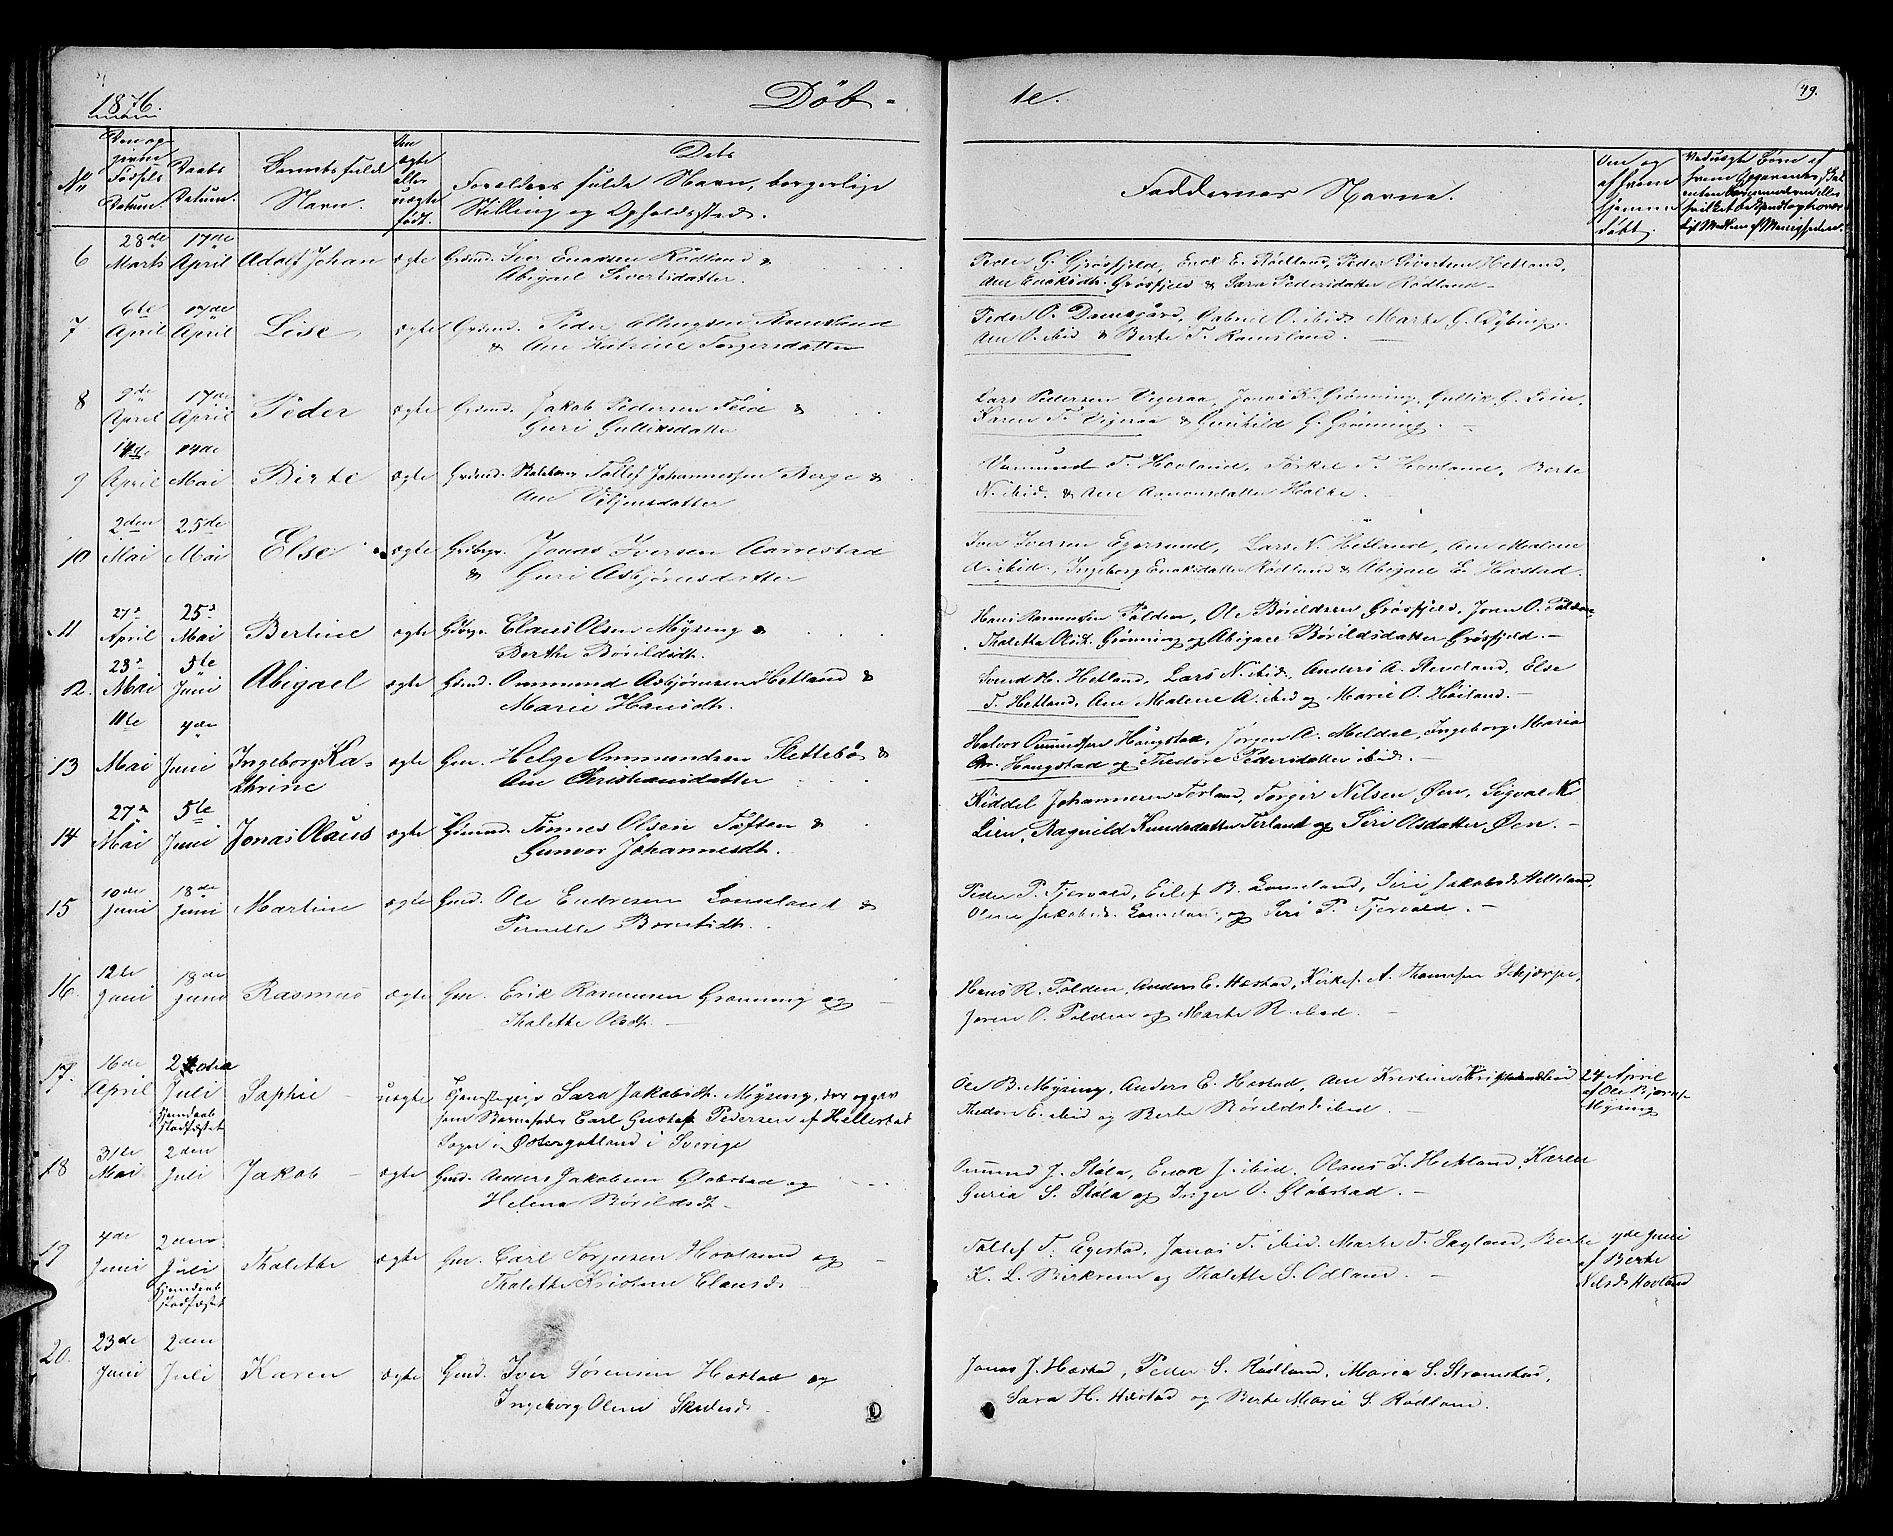 1876.
Døb-
te.
49.
No
Den op-
givne
Fødsels
Datum
Daabs
Datum.
Barnets fulde
Navn.
Om
ægte
eller
uægte
født.
Dets
Forældres fulde Navn, borgerlige
Stilling og Opholdssted.
Faddernes Navne.
Naar og
af hvem
hjemme
døbt.
6
28de Marts
17de April
Adolf Johan
ægte
Grdmd. Iver Enoksen Rødland &
Abigael Sivertsdatter.
Peder G. Grøsfjeld, Enok E. Rødland, Peder Sivertsen Hetland,
Ane Enoksdtr. Grøsfjeld & Sara Pedersdatter Rødland.
7
6te April
17de April
Lise
ægte
Grdmd. Peder Ellingsen Ramsland
& Ane Katrine Torgersdatter
Peder O. Gabriel O. ibid, Marte G.
Ane O. ibid & Berte T. Ramsland.
8
9de April
17de April
Peder
ægte
Grdmd. Jakob Pedersen Feid &
Guri Gulliksdatter
Lars Pedersen Vigeraa, Jonas K. Grønning, Gullik G. Lein,
Karen T. Vigeraa & Gunhild G. Grønning.
9
14de April
14de Mai
Birte
ægte
Grdmd. Tollef Johannessen Berge &
Ane
T. Hovland, Torkel T. Hovland, Berte
N. ibid. & Ane Aamonsdatter
10
2den Mai
25de Mai
Else
ægte
Grdbrgr. Jonas Iversen Aarrestad
& Guri Asbjørnsdatter
Iver Iversen Egersund, Lars N. Hetland, Ane Malene
A. ibid., Ingeborg Enoksdatter Rødland & Abigael E. Hæstad.
11
27de April
25de Mai
Bertine
ægte
Gdbrgr. Claus Olsen Mysing &
Berthe Børildsdtr.
Hans Rasmussen Tolden, Ole Børildsen Grøsfjeld, Joren O. Tolden
Thalette Olsdt. Grønning og Abigael Børildsdatter Grøsfjeld.
12.
28de Mai
5te Juni
Abigael
ægte
Grdmd. Ommund Asbjørnsen Hetland &
Marie Hansdtr.
Svend H. Hetland, Lars N. ibid, Anders A. Reveland, Else
T. Hetland, Ane Malene A. ibid og Marie O. Høiland.
13
11te Mai
4de Juni
Ingeborg Ka-
thrine
ægte
Gmd. Helge Ommundsen Slettebø &
Ane Christiansdatter
Halvor Ommundsen Haugstad, Jørgen A. Meldal, Ingeborg Maria
Haugstad og Thedore Pedersdatter ibid.
14
27de Mai
5te Juni
Jonas Olaus
ægte
Gdmd. Tønnes Olsen Tuften &
Gunvor Johannesdt.
Kiddel Johannesen Terland, Torger Nilsen Øen, Sigval K.
Lien, Ragnild Knudsdatter Terland og Siri Olsdatter Øen.
15
10de Juni
18de Juni
Martine
ægte
Gmd. Ole Endresen Lomeland &
Pernille Berentsdt.
Peder P. Tjørvald, Eilef B. Lomeland, Siri Jakobsdt. Helleland,
Oline Jakobsdt. Lomeland, og Siri P. Tjørvald.
16.
12te Juni
18de Juni
Rasmus
ægte
Gmd. Erik Rasmussen Grønning og
Thalette Olsdt.
Hans R. Tolden, Anders E. Hæstad, Kirkes. A. Thomesen Skjærpe,
Joren O. Tolden og Marte R. ibid.
17.
16de April
2den Juli
Hjemdaab
stadfæstet
Sophie
uægte
Tjenestepige Sara Jakobsdt. Mysing, der opgav
som Barnefader Carl Gustaf Pedersen af Hellestad
Sogn i Østergøtland i Sverige
Ole B. Mysing, Anders E. Hæstad, Ane Kristine
Thedore E. ibid og Berte Børildsd. ibid.
24 April
af Ole Bjørns.
Mysing
18
31te Mai
2den Juli
Jakob
ægte
Gmd. Anders Jakobsen Gløbstad og
Helene Børildsdt.
Ommund J. Støla, Enok J. ibid. Olaus J. Hetland, Karen
Guria S. Støla og Inger O. Gløbstad.
19
4de Juni
2den Juli
Hjemdaab
stadfæstet
Thalette
ægte
Gmd. Carl Torjusen Hovland og
Thalette Kristine Clausd.
Tollef T. Egestad, Jonas T. ibid. Marte T. Sagland, Berte
K. L. Birkrem og Thalette S. Odland.
4de Juni
af Berte
Nilsd. Hovland
20.
23de Juni
2den Juli
Karen
ægte
Gmd. Iver Sørensen Hæstad og
Ingeborg Oline
Jonas J. Hæstad, Peder S. Rødland, Maria S. Strømstad,
Sara H. Hæstad og Berte Marie S. Rødland.